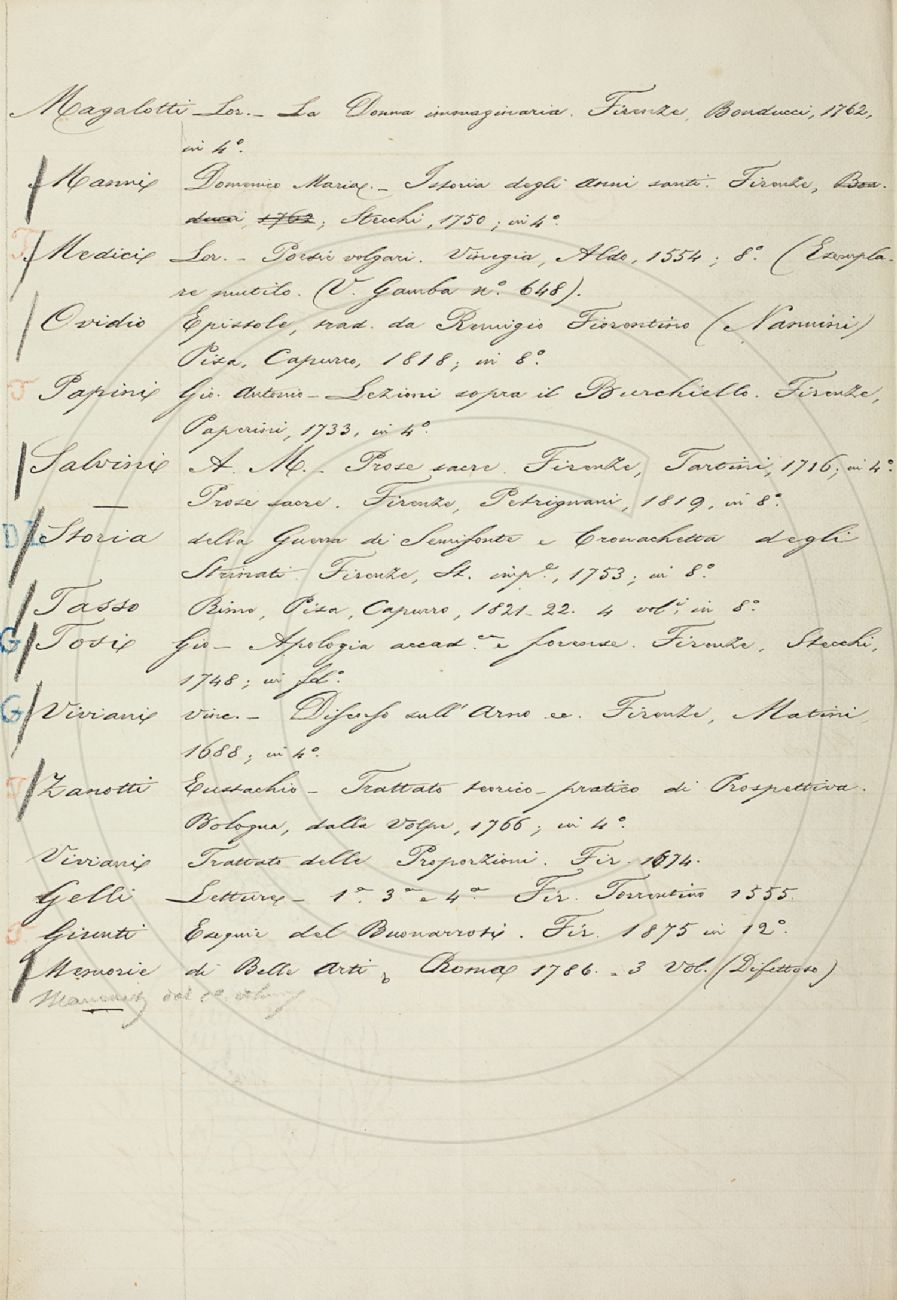 Magalotti Lor. - La Donna immaginaria. Firenze, Bonducci, 1762,
in 4°.
Manni Domenico Maria. - Istoria degli anni santi. Firenze, Bon-
ducci, 1762; Stecchi, 1750; in 4°.
T Medici Lor. - Poesie volgari. Vinegia, Aldo, 1554; 8°. (Esempla-
re mutilo. (V. Gamba n°. 648).
Ovidio Epistole, trad. da Remigio Fiorentino (Nannini)
Pisa, Capurro, 1818; in 8°.
T Papini Gio. Antonio - Lezioni sopra il Burchiello. Firenze,
Paperini, 1733, in 4°.
Salvini A. M. - Prose sacre. Firenze, Tartini, 1716; in 4°.
— Prose sacre. Firenze, Petrignani, 1819, in 8°.
DL Storia della Guerra di Semifonte e Cronachetta degli
Strinati. Firenze, St. imp.e, 1753; in 8°.
Tasso Rime, Pisa, Capurro, 1821-22. 4 vol.i in 8°.
G Tosi Gio - Apologia accad.ca e forense. Firenze, Stecchi,
1748; in fol°.
G Viviani Vinc. - Discorso sull'Arno ec. Firenze, Matini,
1688; in 4°.
V Zanotti Eustachio - Trattato teorico-pratico di Prospettiva.
Bologna, dalla Volpe, 1766; in 4°.
Viviani Trattato delle Proporzioni. Fir. 1674.
Gelli Letture - 1a. 3a e 4a Fir. Torrentino 1555.
Giunti Esequie del Buonarroti. Fir. 1875 in 12°.
Memorie di Belle Arti, Roma 1786. - 3 Vol. (Difettoso)